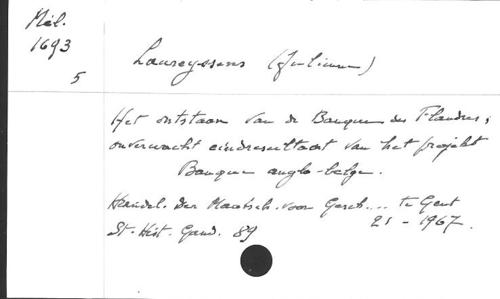 Mél.
1693
5
Laureyssens (Julienne)
Het ontstaan van de Banque des Flandres;
onverwacht eindresultaat van het projekt
Banque anglo-belge.
Handel. Der Maatsch. voor Gesch... te Gent
21 - 1967.
St. Hist. Gand. 89